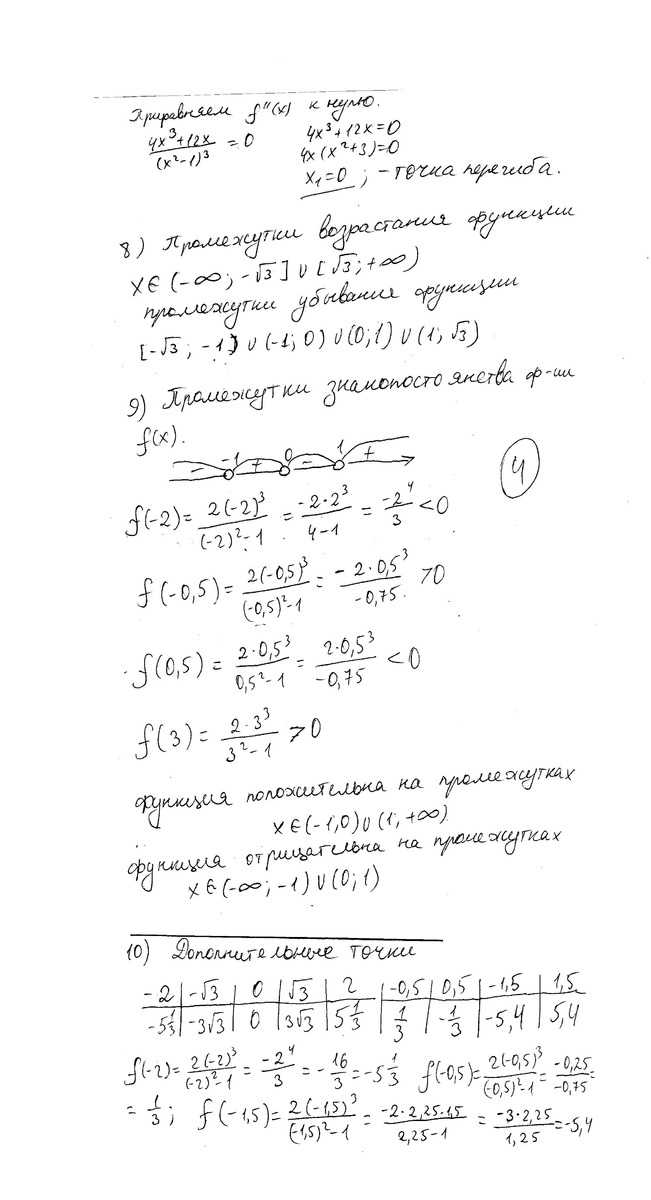 Приравняем f''(x) к нулю.
(4x³+12x)/(x²-1)³ = 0   4x³+12x=0
4x(x²+3)=0
x₁=0 ; - точка перегиба.
8) Промежутки возрастания функции
x∈(-∞; -√3] ∪ [√3; +∞)
промежутки убывания функции
[-√3; -1) ∪ (-1; 0) ∪ (0; 1) ∪ (1; √3)
9) Промежутки знакопостоянства ф-ии
f(x).
-1 0 1
- + - +
4
f(-2) = 2(-2)³/((-2)²-1) = -2·2³/(4-1) = -2⁴/3 < 0
f(-0,5) = 2(-0,5)³/((-0,5)²-1) = -2·0,5³/(-0,75) > 0
f(0,5) = 2·0,5³/(0,5²-1) = 2·0,5³/(-0,75) < 0
f(3) = 2·3³/(3²-1) > 0
функция положительна на промежутках
x∈(-1,0)∪(1,+∞)
функция отрицательна на промежутках
x∈(-∞; -1)∪(0; 1)
10) Дополнительные точки
-2 | -√3 | 0 | √3 | 2 | -0,5 | 0,5 | -1,5 | 1,5
-5 1/3 | -3√3 | 0 | 3√3 | 5 1/3 | 1/3 | -1/3 | -5,4 | 5,4
f(-2) = 2(-2)³/((-2)²-1) = -2⁴/3 = -16/3 = -5 1/3   f(-0,5) = 2(-0,5)³/((-0,5)²-1) = -0,25/-0,75 =
= 1/3; f(-1,5) = 2(-1,5)³/((-1,5)²-1) = -2·2,25·1,5/(2,25-1) = -3·2,25/1,25 = -5,4